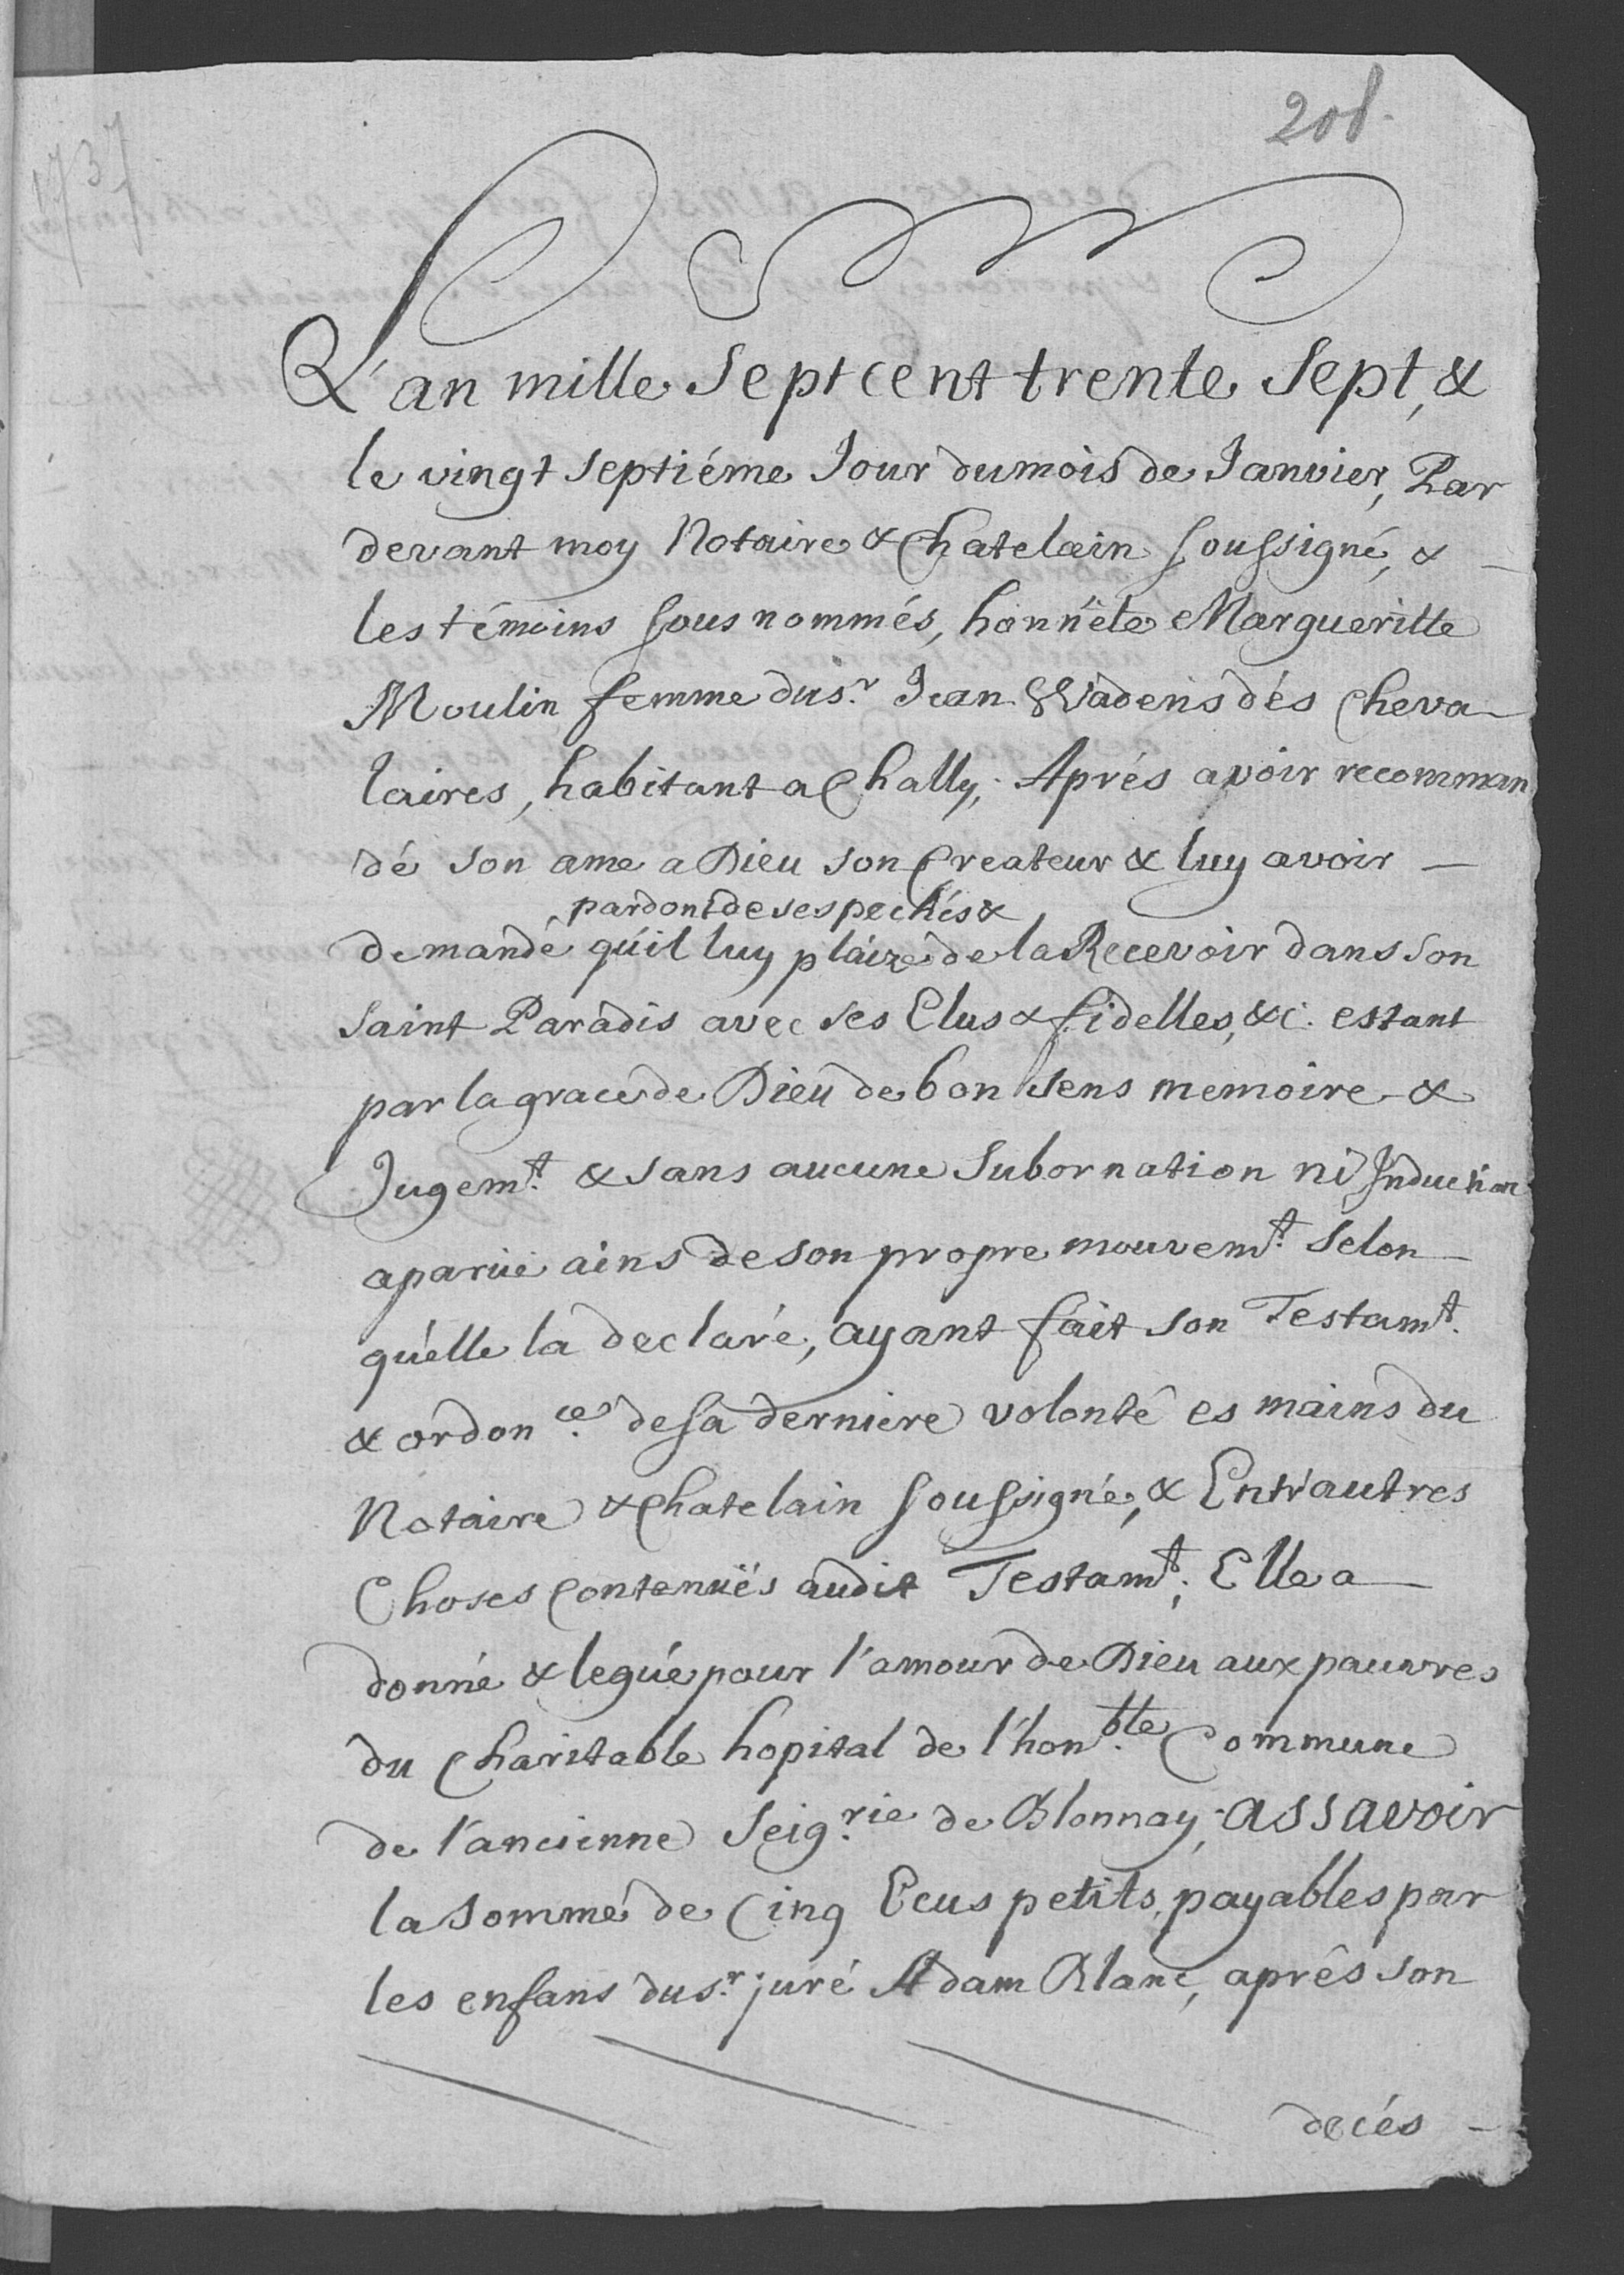 208.
1737
L'an mille Sept cent trente Sept, &
le vingt septiéme Jour du mois de Janvier, Par
devant moy Notaire & Chatelain soussigné, &
les témoins sous nommés, honnête Margueritte
Moulin femme du s.r Jean Wadens dés Cheva
laires, habitant a Chally; Aprés avoir recomman
dé son ame a Dieu son Createur & luy avoir —
pardont de ses pechés &
demandé qu'il luy plaize de la Recevoir dans son
saint Paradis avec ses Elus & fidelles, &c. estant
par la grace de Dieu de bon sens memoire &
Jugem.t & sans aucune Subornation ni Induction
ains de son propre mouvem.t selon —
qu'elle la declaré, ayant fait son Testam.t
& ordon.ce de sa derniere volonté es mains du
Notaire & Chatelain soussigné, & Entr'autres
Choses Contenuës audit Testam.t; Elle a —
donné & legué pour l'amour de Dieu aux pauvres
du Charitable hopital de l'hon.ble Commune
de l'ancienne Seig.rie de Blonnay, assavoir
la somme de Cinq Ecus petits, payables par
les enfans du s.r juré Adam Blanc, aprês son
decés —